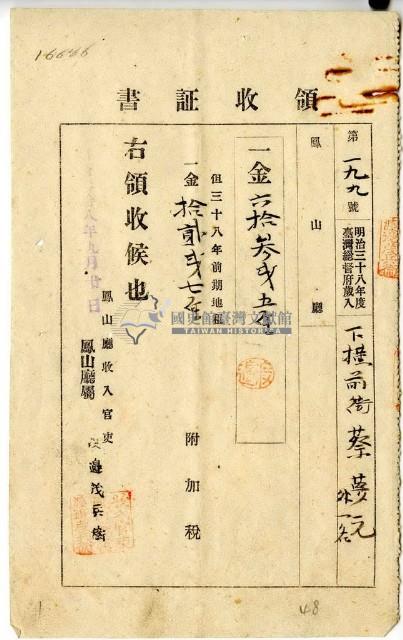 16666
領收証書
第一九九號
明治三十八年度
臺灣總督府歲入
蔡夢元
外一名
鳳山廳
一金六拾參戔五厘
但三十八年前期地租
一金拾貳戔七厘
附加稅
右領收候也
八年九月廿日
鳳山廳收入官吏
鳳山廳屬
國史館臺灣文獻館
TAIWAN HISTORICA
48